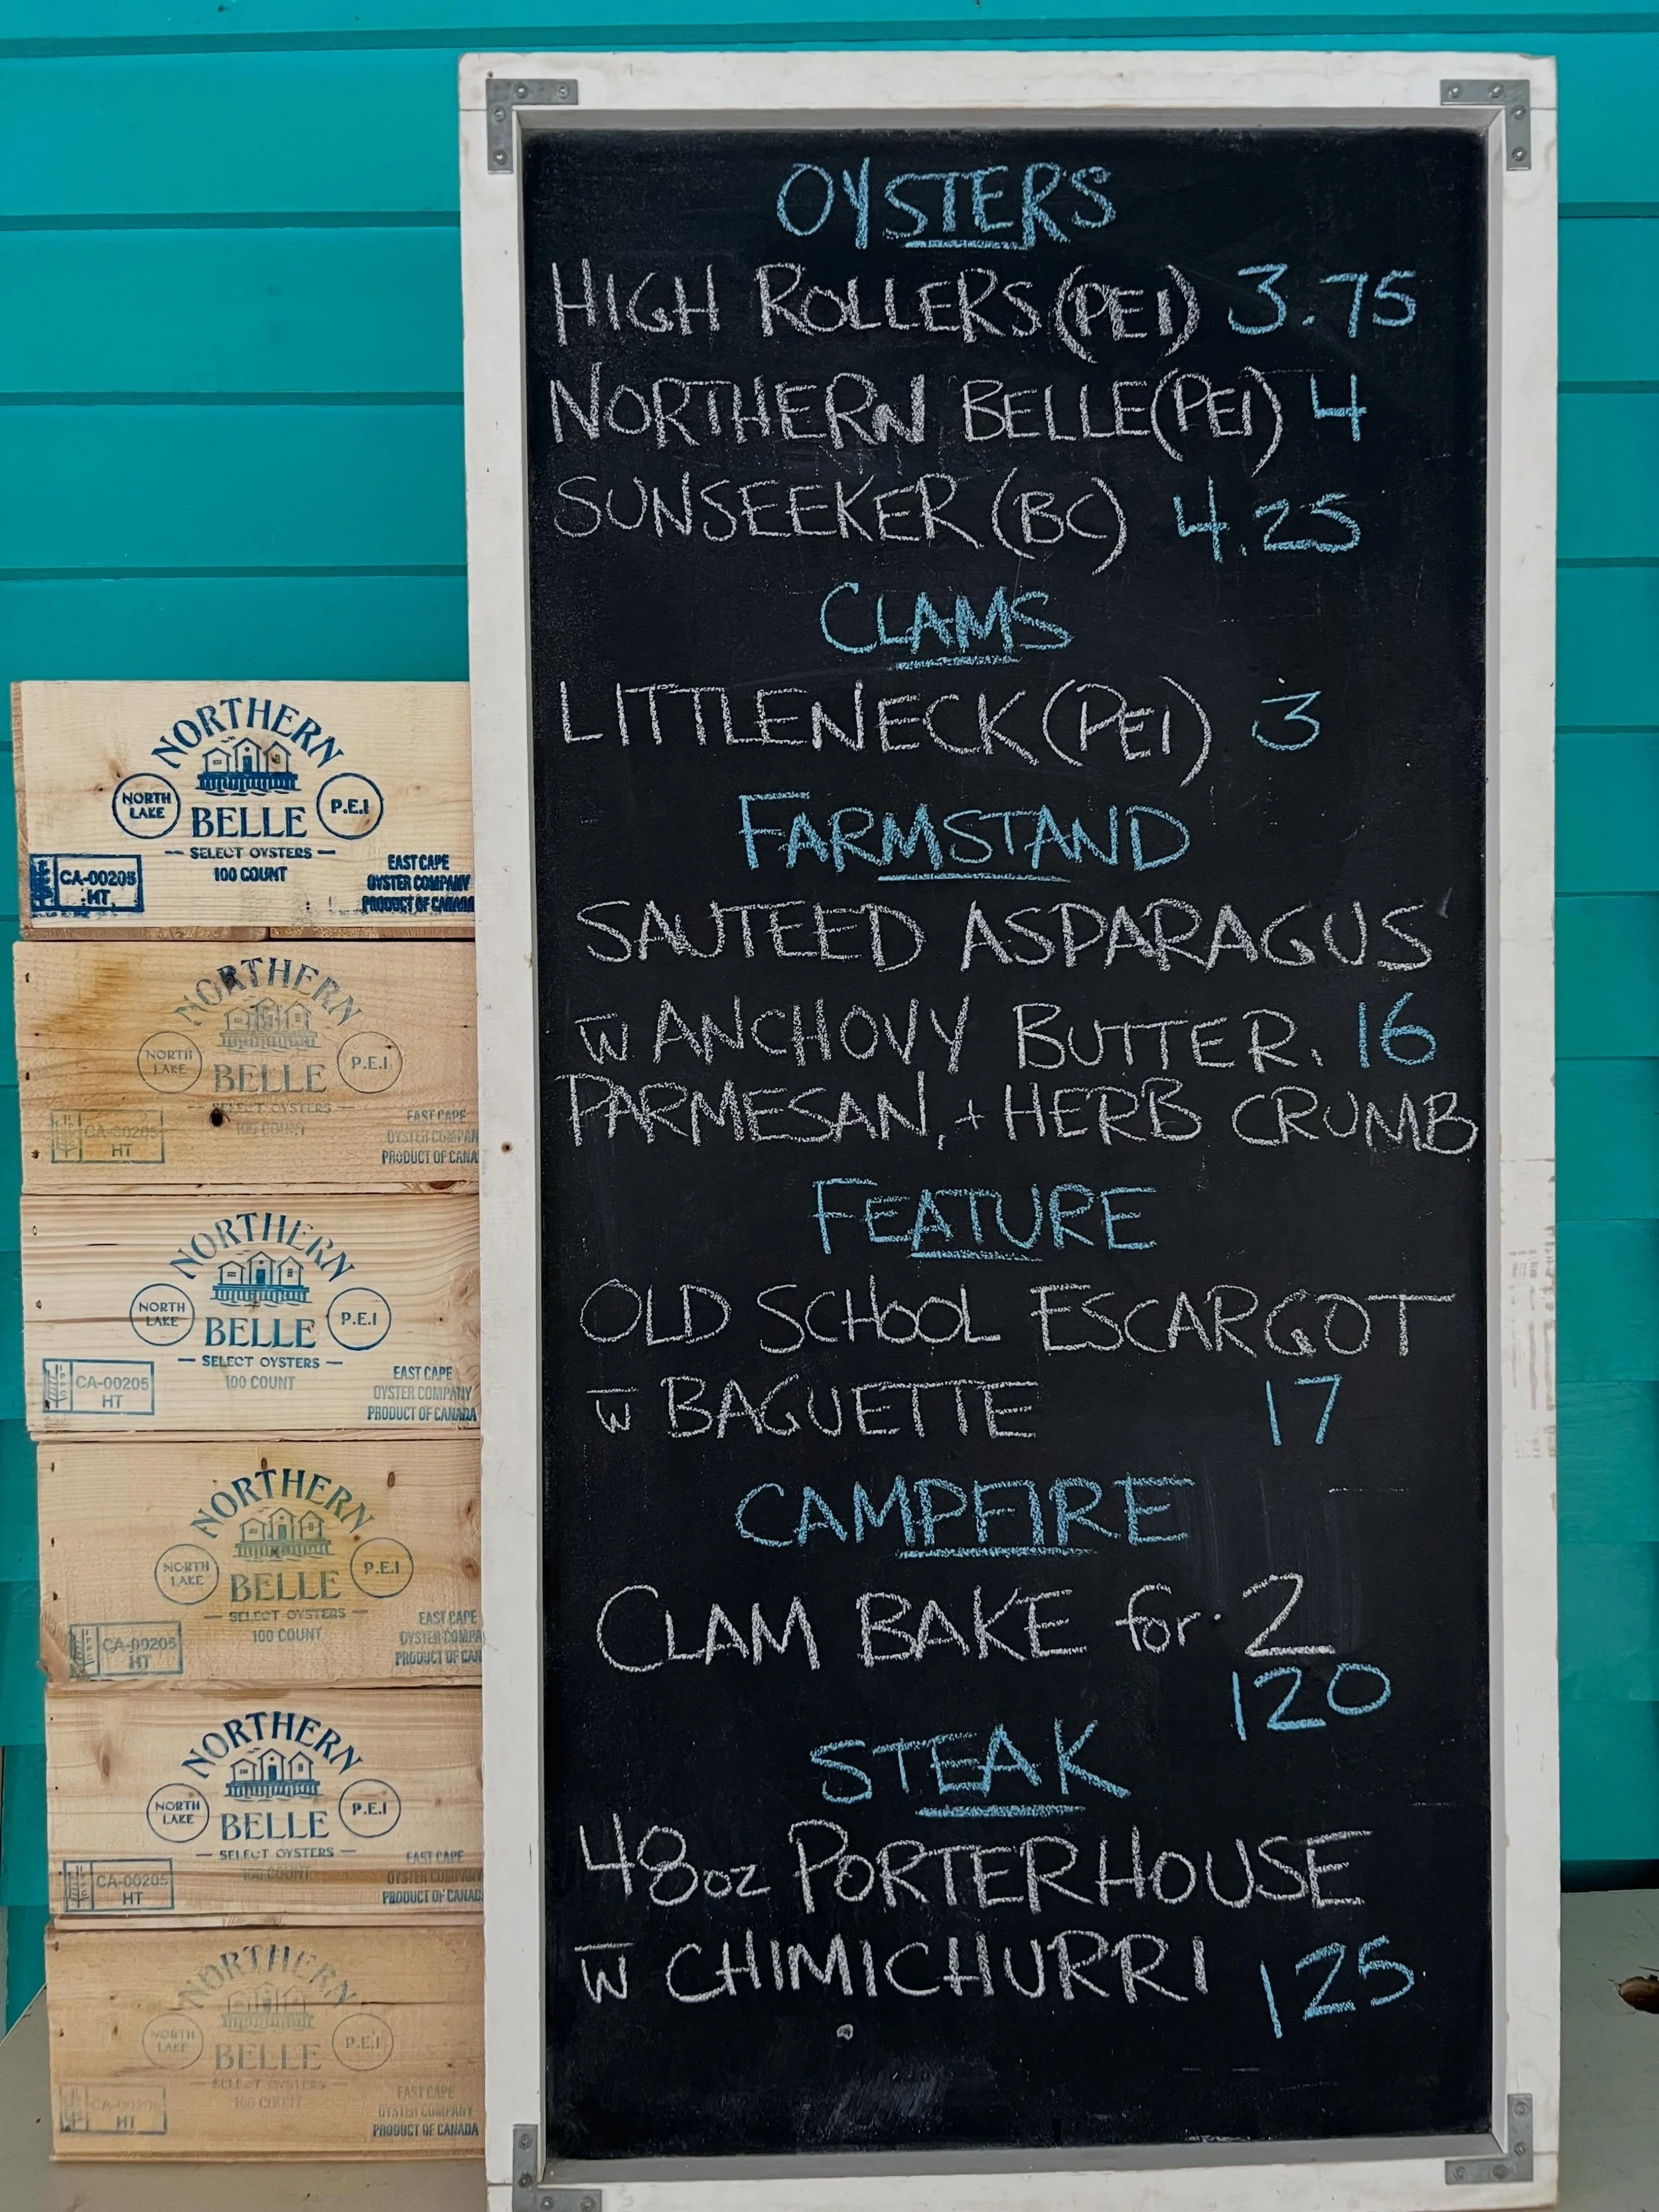 OYSTERS
HIGH ROLLERS (PEI) 3.75
NORTHERN BELLE (PEI) 4
SUNSEEKER (BC) 4.25
CLAMS
LITTLENECK (PEI) 3
FARMSTAND
SAUTEED ASPARAGUS
w̅ ANCHOVY BUTTER, 16
PARMESAN, + HERB CRUMB
FEATURE
OLD SCHOOL ESCARGOT
w̅ BAGUETTE 17
CAMPFIRE
CLAM BAKE for 2
120
STEAK
48oz PORTERHOUSE
w̅ CHIMICHURRI 125
NORTHERN
NORTH LAKE
P.E.I
BELLE
SELECT OYSTERS
100 COUNT
CA-00205
HT
EAST CAPE
OYSTER COMPANY
PRODUCT OF CANADA
NORTHERN
NORTH LAKE
P.E.I
BELLE
SELECT OYSTERS
100 COUNT
CA-00205
HT
EAST CAPE
OYSTER COMPAN
PRODUCT OF CANA
NORTHERN
NORTH LAKE
P.E.I
BELLE
SELECT OYSTERS
100 COUNT
CA-00205
HT
EAST CAPE
OYSTER COMPANY
PRODUCT OF CANADA
NORTHERN
NORTH LAKE
P.E.I
BELLE
SELECT OYSTERS
100 COUNT
CA-00205
HT
EAST CAPE
OYSTER COMPA
PRODUCT OF CAN
NORTHERN
NORTH LAKE
P.E.I
BELLE
SELECT OYSTERS
100 COUNT
CA-00205
HT
EAST CAPE
OYSTER COMPANY
PRODUCT OF CANAD
NORTHERN
NORTH LAKE
P.E.I
BELLE
SELECT OYSTERS
100 COUNT
CA-00205
HT
EAST CAPE
OYSTER COMPANY
PRODUCT OF CANADA